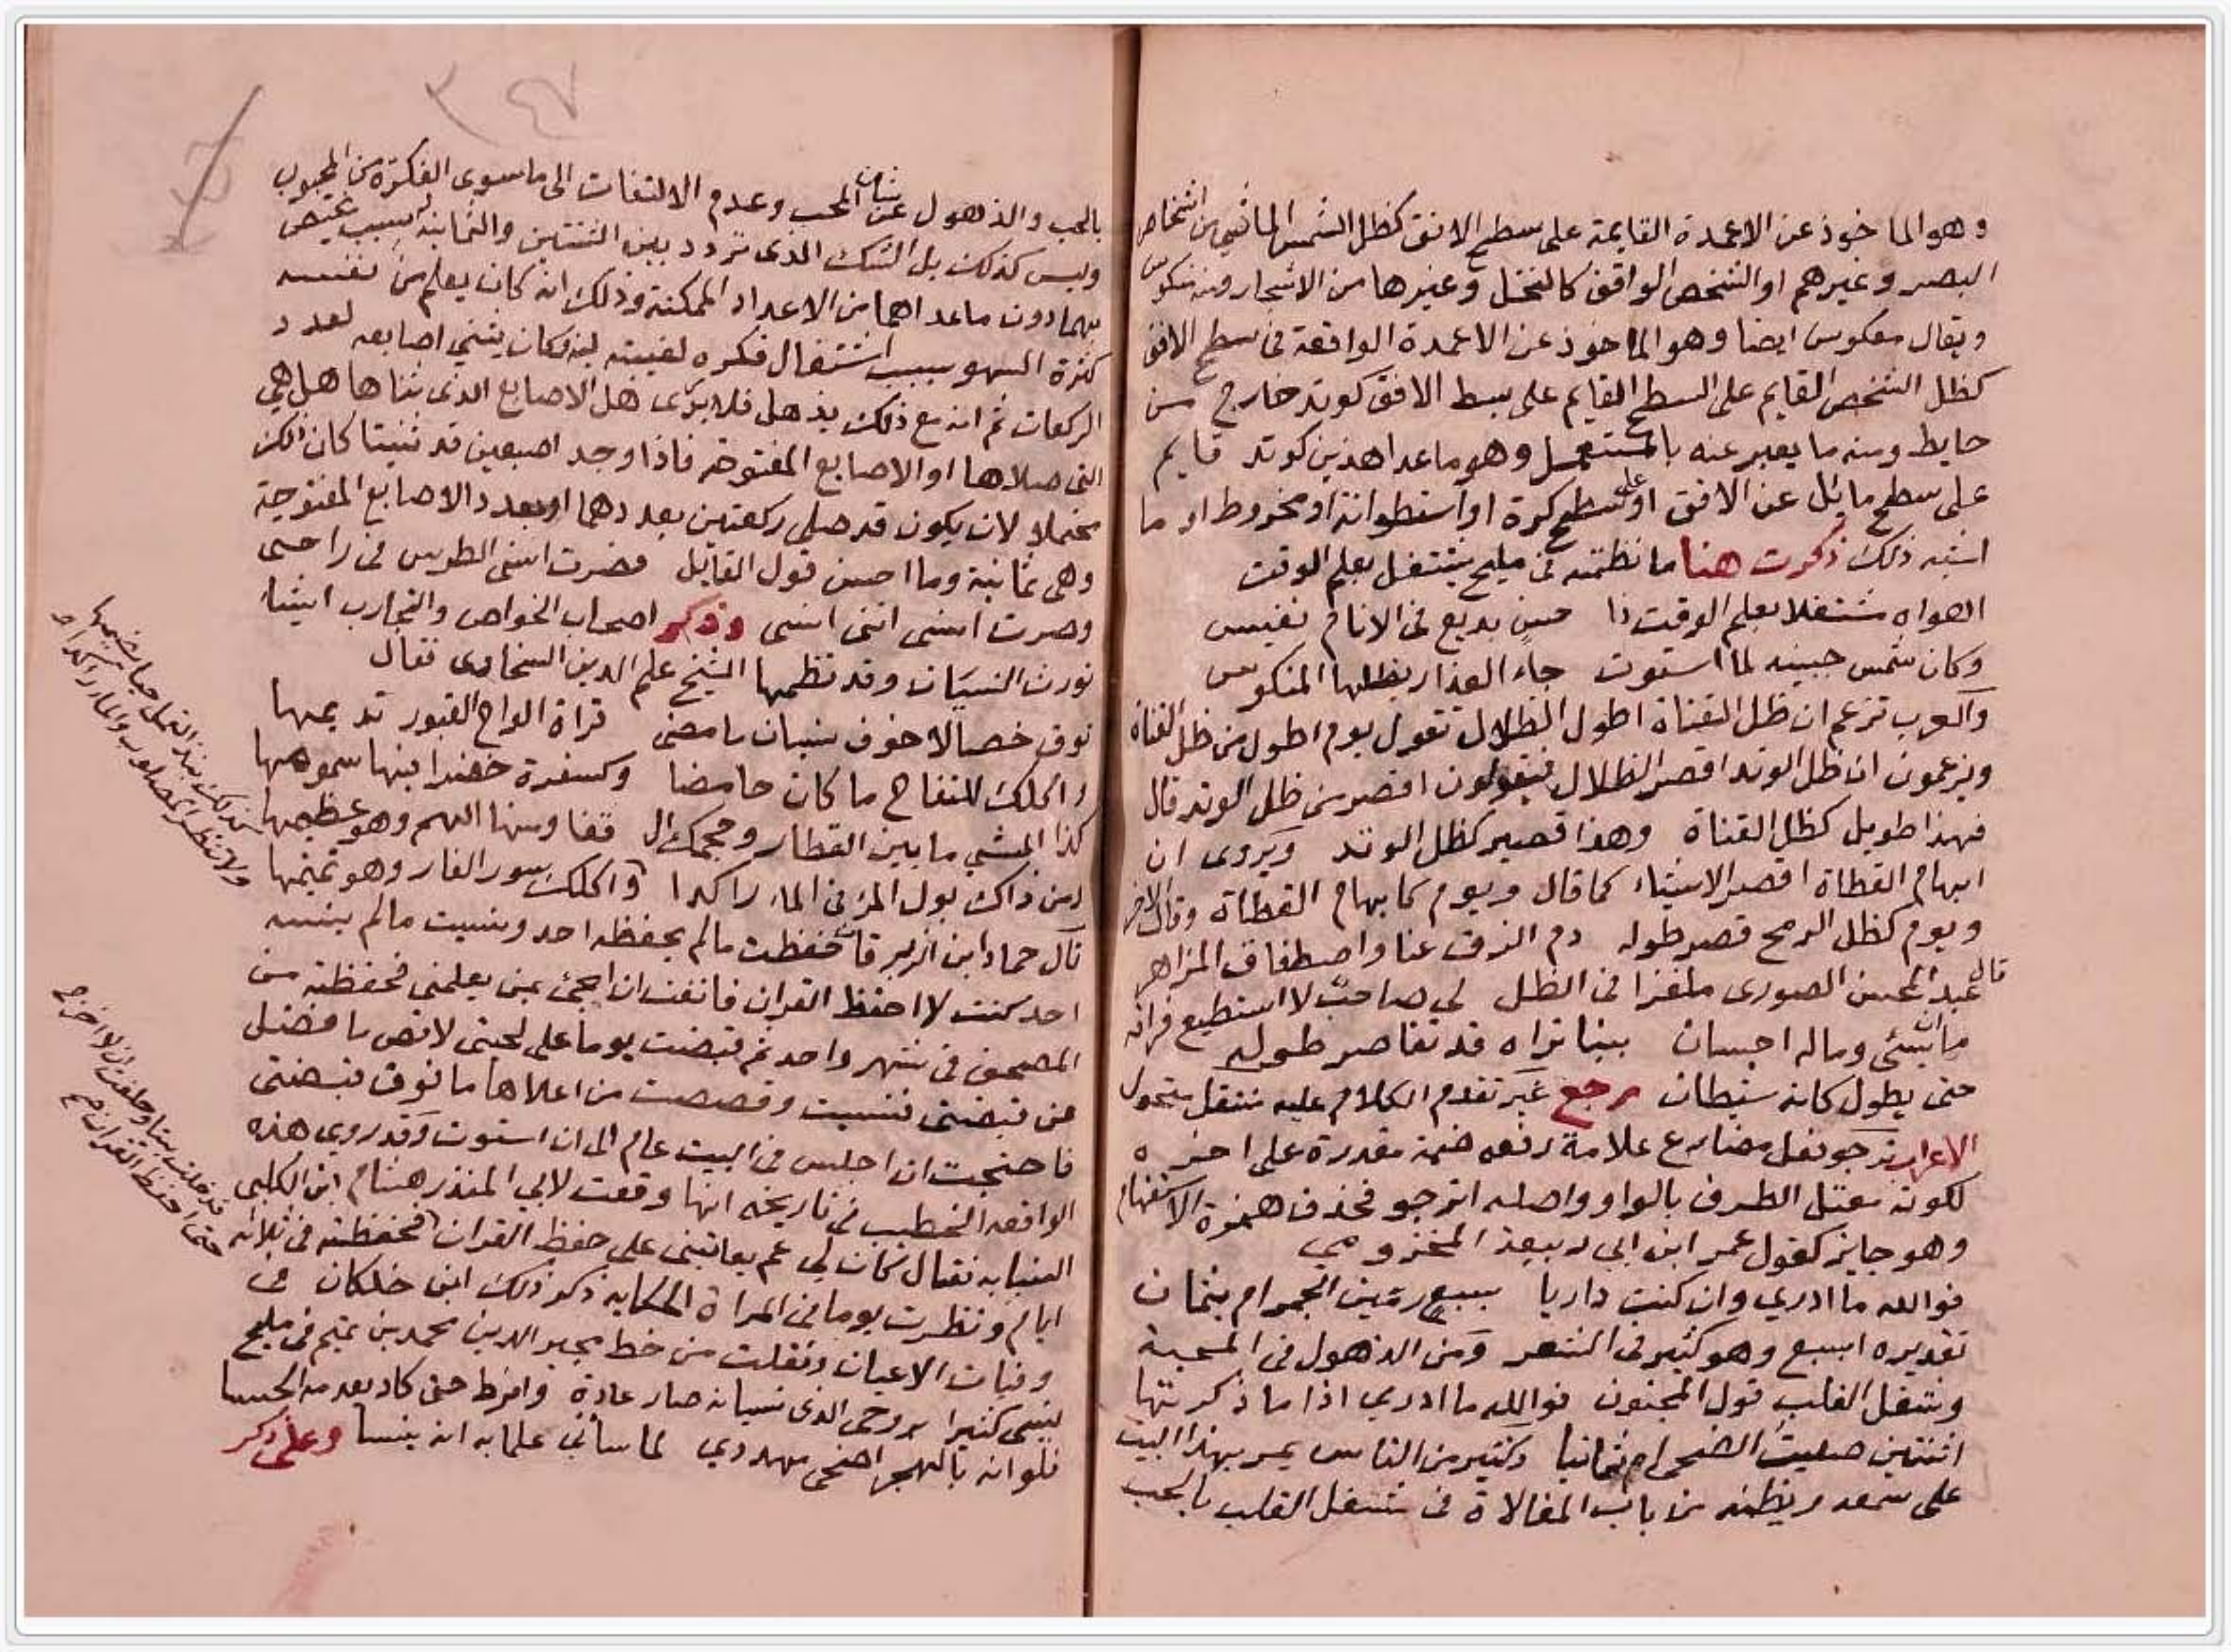 وهو الماخوذ عن الاعمدة القايمة على سطح الافق كظل الشمس الماشي من اشخاص
البصر وغيرهم او الشخص الواقف كالنخل وغيرها من الاشجار ومنه منكوس
ويقال معكوس ايضا وهو الماخوذ عن الاعمدة الواقعة في سطح الافق
كظل الشخص القايم على السطح القايم على بسط الافق كوتد خارج من
حايط ومنه ما يعبر عنه بالمستعمل وهو ما عدا هذين كوتد قايم
على سطح مائل عن الافق او على سطح كرة او اسطوانة او مخروط او ما
اشبه ذلك ذكرت هنا ما نظمته في مليح يشتغل بعلم الوقت
اهواه مشتغلا بعلم الوقت ذا حسن بديع في الانام نفيس
وكان شمس جبينه لما استوت جاء العذار بظلها المنكوس
والعرب تزعم ان ظل القناة اطول الظلال تقول يوم اطول من ظل القناة
ويزعمون ان ظل الوتد اقصر الظلال فيقولون اقصر من ظل الوتد قال
فهذا طويل كظل القناة وهذا قصير كظل الوتد ويروى ان
ابهام القطاة اقصر الاشياء كما قال ويوم كابهام القطاة وقال الاخر
ويوم كظل الرمح قصر طوله دم الزق عنا واصطفاق المزاهر
قال عبد المحسن الصوري ملغزا في الظل لي صاحب لا استطيع فراقه
ما ان شيئ وماله احسان بينا تراه قد تقاصر طوله
حتى يطول كانه شيطان رجع غير تقدم الكلام عليه منتقل متحول
الاعراب ترجو فعل مضارع علامة رفعه ضمة مقدرة على اخره
لكونه معتل الطرف بالواو واصله اترجو فحذف همزة الاستفهام
وهو جايز كقول عمر ابن ابي ربيعة المخزومي
فوالله ما ادري وان كنت داريا بسبع رمين الجمر ام بثمان
تقديره ابسبع وهو كثير في الشعر ومن الذهول في المحبة
وشغل القلب قول المجنون فوالله ما ادري اذا ما ذكرتها
اثنتين صليت الضحى ام ثمانيا وكثير من الناس يمر بهذا البيت
على سمعه ويظنه من باب المغالاة في شغل القلب بالحب
بالحب والذهول عن شان المحب وعدم الالتفات الى ما سوى الفكرة من المحبوب
وليس كذلك بل الشك الذي تردد بين الثنتين والثمانية لسبب يختص
بهما دون ما عداهما من الاعداد الممكنة وذلك انه كان يعلم من نفسه
كثرة السهو بسبب اشتغال فكره لغيبته فكان يثني اصابعه لعدد
الركعات ثم انه مع ذلك يذهل فلا يدري هل الاصابع الذي ثناها هل هي
التي صلاها او الاصابع المفتوحة فاذا وجد اصبعين قد ثنيتا كان
محتملا لان يكون قد صلى ركعتين بعددهما او بعدد الاصابع المفتوحة
وهي ثمانية وما احسن قول القايل فصرت انسى الطرس في راحتي
وصرت انسى انني انسى وذكر اصحاب الخواص والتجارب اشياء
تورث النسيان وقد نظمها الشيخ علم الدين السخاوى فقال
توق خصالا خوف نسيان ما مضى قراة الواح القبور تديمها
واكلك للتفاح ما كان حامضا وكسفرة خضرا فيها سمومها
كذا المشي ما بين القطار وحجمك ال قفا ومنها الهم وهو عظيمها
ومن ذاك بول المرء في الماء راكدا واكلك سور الفار وهو تميمها
قال حماد ابن الزبرقان حفظت ما لم يحفظه احد ونسيت ما لم ينسه
احد كنت لا احفظ القران فانفت ان اجئ بمن يعلمني فحفظته من
المصحف في شهر واحد ثم قبضت يوما على لحيتي لاقص ما فضل
عن قبضتي فنسيت وقصصت من اعلاها ما فوق قبضتي
فاحتجت ان اجلس في البيت عام الى ان استوت وقد روي هذه
الواقعة الخطيب في تاريخه انها وقعت لابي المنذر هشام ابن الكلبي
النسابه فقال كان لي عم يعاتبني على حفظ القران فحفظته في ثلاثة
ايام ونظرت يوما في المراة الحكاية ذكر ذلك ابن خلكان في
وفيات الاعيان ونقلت من خط مجير الدين محمد بن تميم في مليح
ينسى كثيرا بروحى الذى نسيانه صار عادة وافرط حتى كاد يعدمه الحسا
فلو انه بالهجر اضحى مهددي لما ساءني علما به انه ينسا وعلى ذكر
كذلك نبذ القمل حيا
ولا تنظر المصلوب والماء راكدا
فدخلت بيتا وحلفت ان لا اخرج
حتى احفظ القران صح